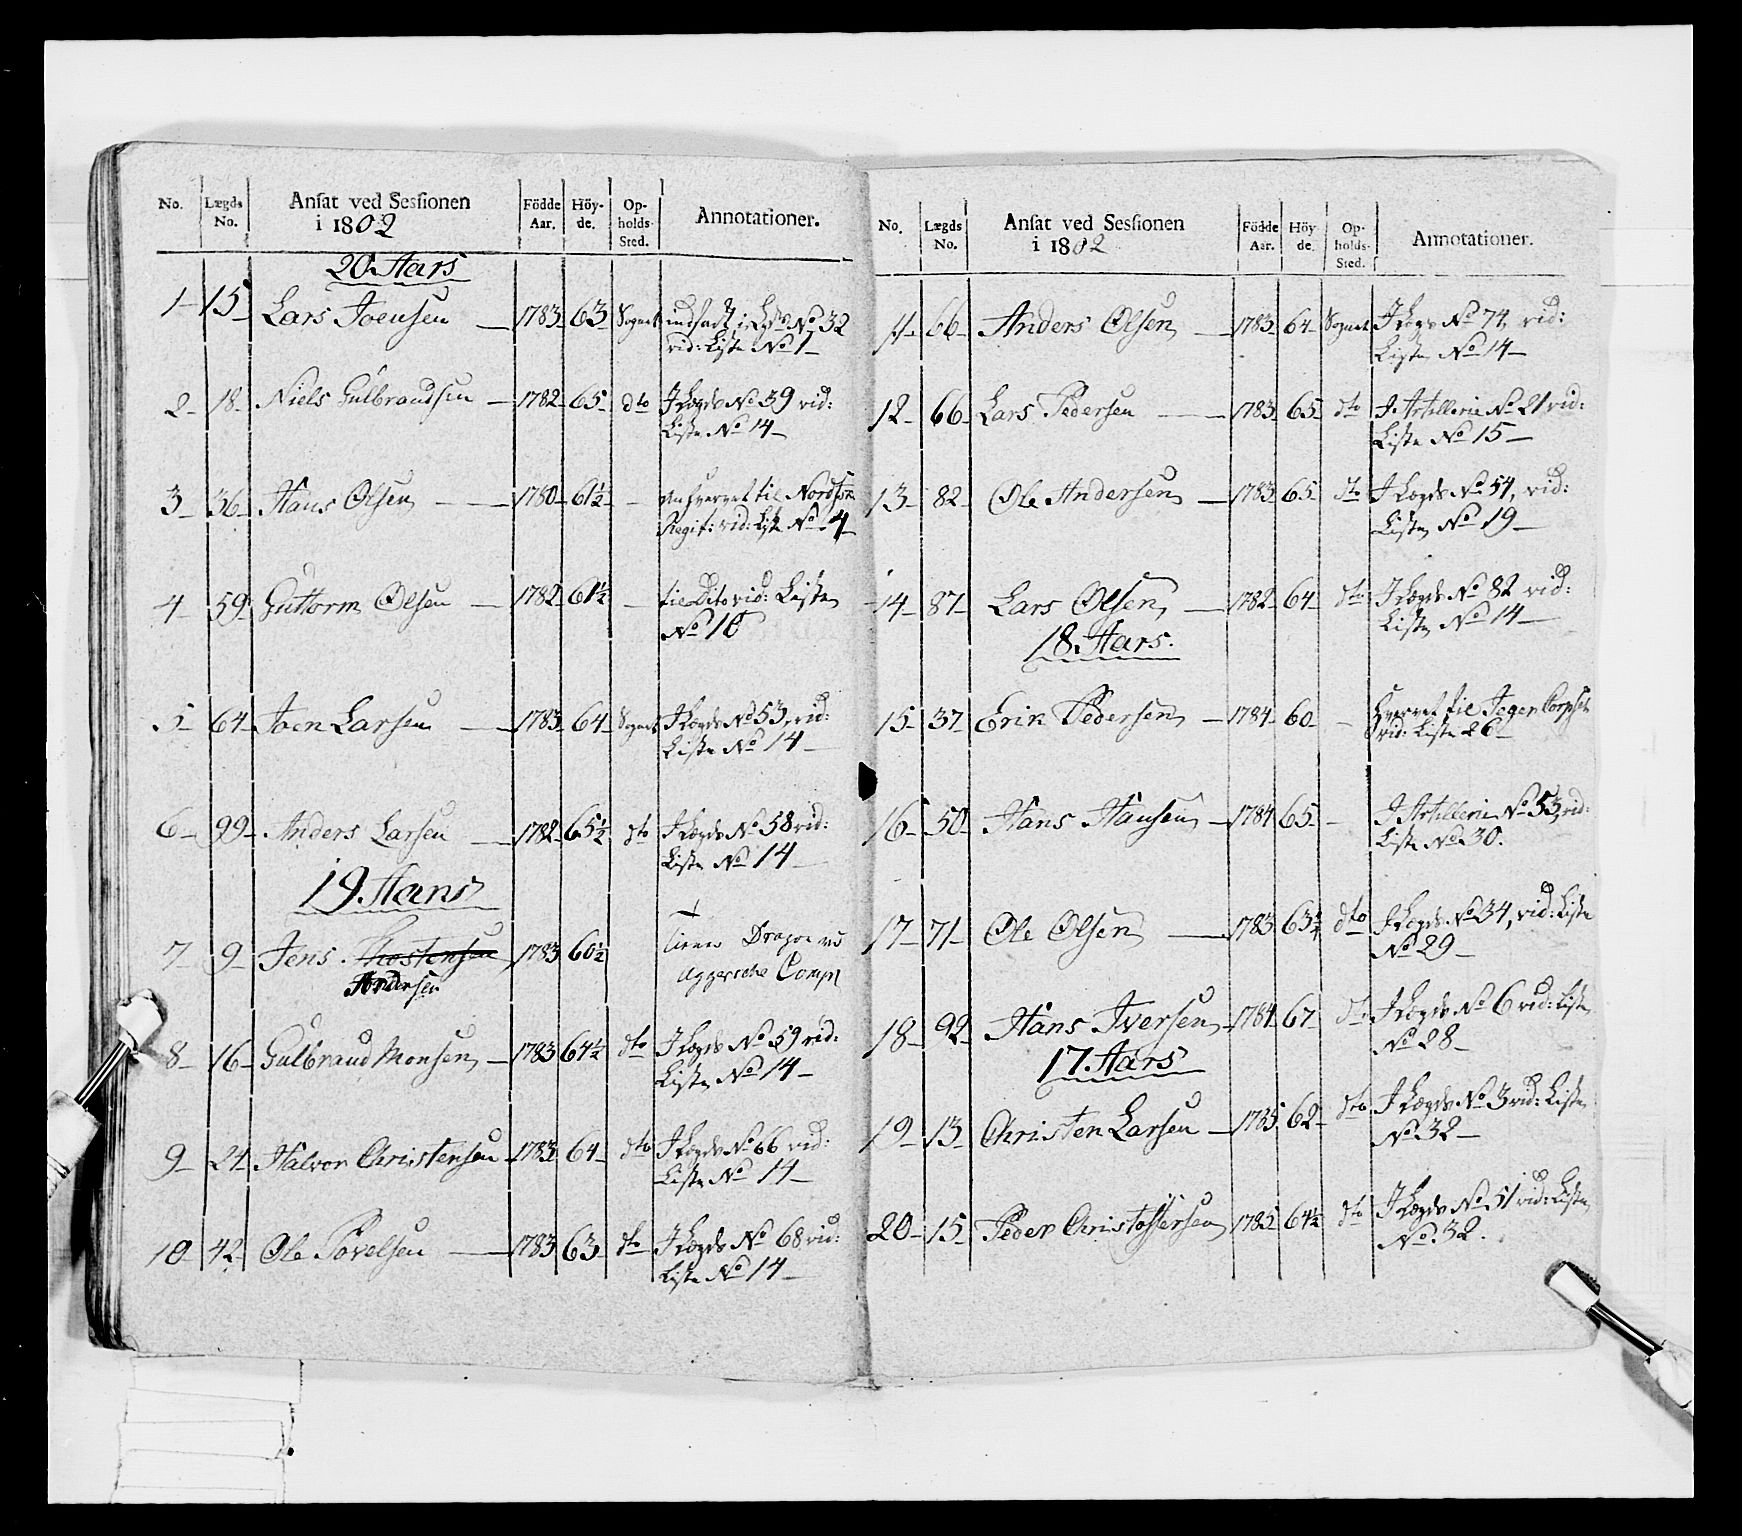 No. Lægds No. Ansat ved Sessionen i 1802 Födde Aar. Höyde. Opholds Sted. Annotationer.
20 Aars
1 15 Lars Joensen 1783 63 Sognet indsadt i Lgd No 32
vid: Liste No 1
2 18 Niels Gulbrandsen 1782 65 dto I Lægds No 39 vid:
Liste No 14
3 36 Hans Olsen 1780 61½ til Nordf:
Regit: vid: Liste No 4
4 59 Guttorm Olsen 1782 61½ til Dito vid: Liste
No 10
5 64 Joen Larsen 1783 64 Sognet I Lægds No 53, vid:
Liste No 14
6 99 Anders Larsen 1782 65½ dto I Lægds No 58 vid:
Liste No 14
19 Aars
7 9 Jens Thostensen 1783 60½ tiener Dragon ved
Andersen Aggersche Comp
8 16 Gulbrand Monsen 1783 64½ dto I Lægds No 59 vid:
Liste No 14
9 24 Halvor Christensen 1783 64 dto I Lægds No 66 vid:
Liste No 14
10 42 Ole Povelsen 1783 63 dto I Lægds No 68 vid:
Liste No 14
No. Lægds No. Ansat ved Sessionen i 1802 Födde Aar. Höyde. Opholds Sted. Annotationer.
11 66 Anders Olsen 1783 64 Sognet I Lægds No 74, vid:
Liste No 14
12 66 Lars Pedersen 1783 65 dto I Artillerie No 21 vid:
Liste No 15
13 82 Ole Andersen 1783 65 dto I Lægds No 54, vid:
Liste No 19
14 87 Lars Olsen 1782 64 dto I Lægds No 82 vid:
Liste No 14
18 Aars.
15 37 Erik Pedersen 1784 60 til Jeger Corpset
vid: Liste 26
16 50 Hans Hansen 1784 65 I Artillerie No 53, vid:
Liste No 30.
17 71 Ole Olsen 1783 63¾ dto I Lægds No 34, vid: Liste
No 29
18 92 Hans Iversen 1784 67 dto I Lægds No 6 vid: Liste
No 28
17 Aars
19 13 Christen Larsen 1785 62 dto I Lægds No 3 vid: Liste
No 32
20 15 Peder Christophersen 1785 64½ dto I Lægds No 51 vid: Liste
No. 32.